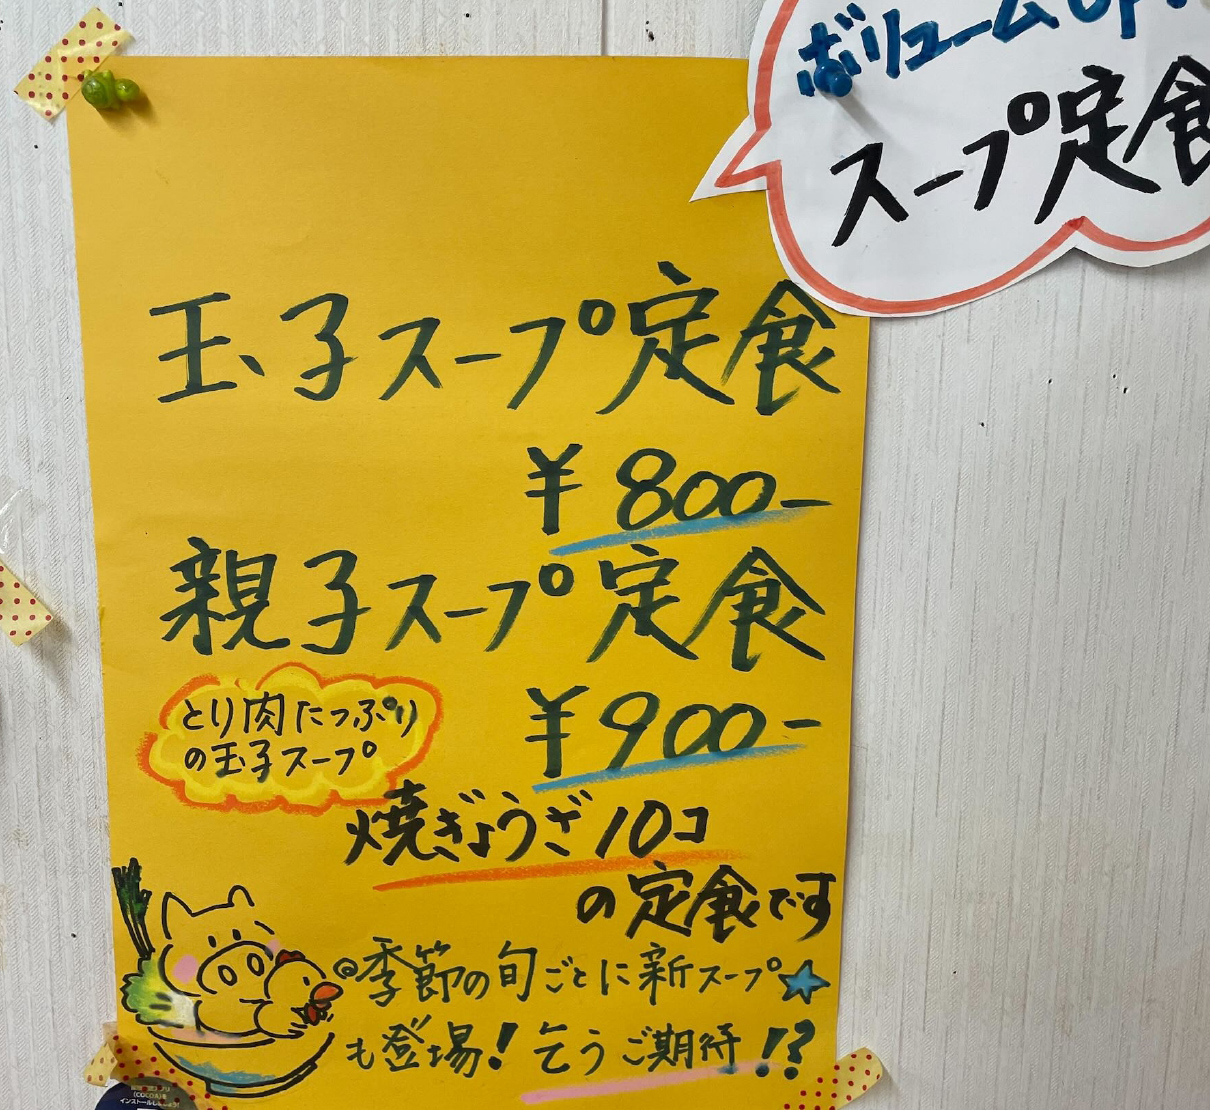 ボリュームUP
スープ定食
玉子スープ定食
¥800-
親子スープ定食
とり肉たっぷり
の玉子スープ
¥900-
焼ぎょうざ10コ
の定食です
◎季節の旬ごとに新スープ☆
も登場!乞うご期待!?
(COCOA)を
インストールしましょう!